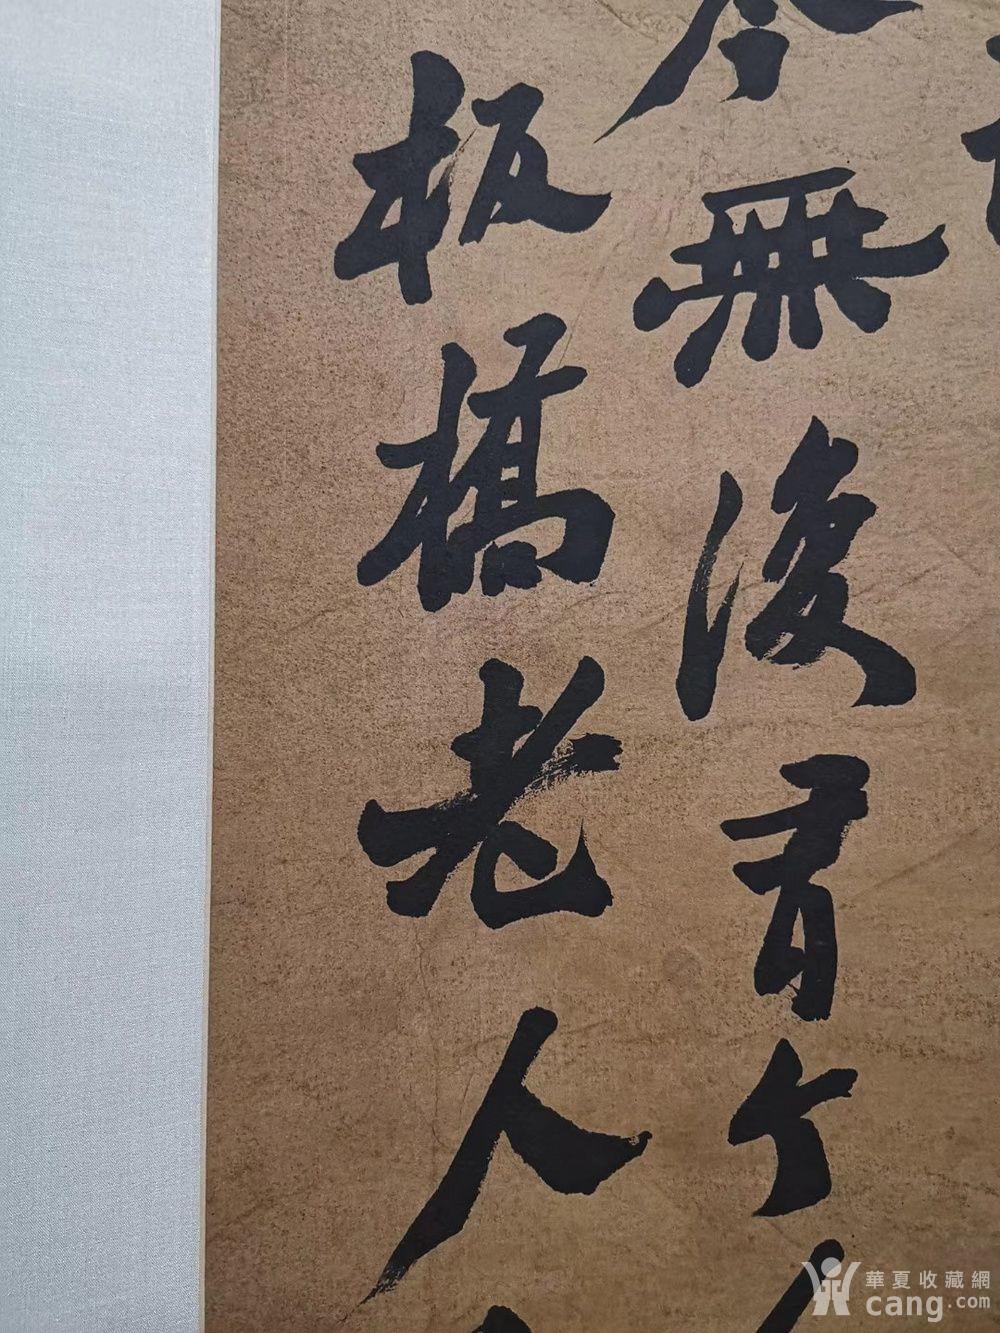 今無復有个
板橋老人
華夏收藏網
cang.com